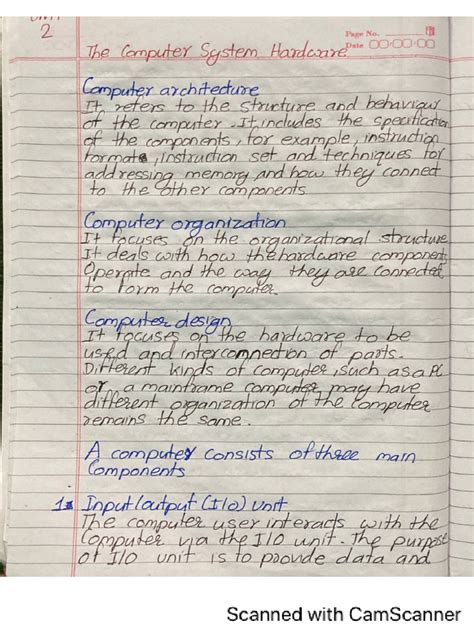 UNIT
2
Page No.
Date 00-00-00
The Computer System Hardware
Computer architecture
It refers to the structure and behaviour
of the computer. It includes the specification
of the components, for example, instruction
format, instruction set and techniques for
addressing memory and how they connect
to the other components
Computer organization
It focuses on the organizational structure
It deals with how the hardware component
Operate and the way they are connected
to form the computer
Computer design
It focuses on the hardware to be
used and interconnection of parts.
Different kinds of computer, such as a PC
or a mainframe computer may have
different organization of the computer
remains the same.
A computer consists of three main
Components
1. Input/output (I/o) unit
The computer user interacts with the
Computer via the I/O unit. The purpose
of I/O unit is to provide data and
Scanned with CamScanner